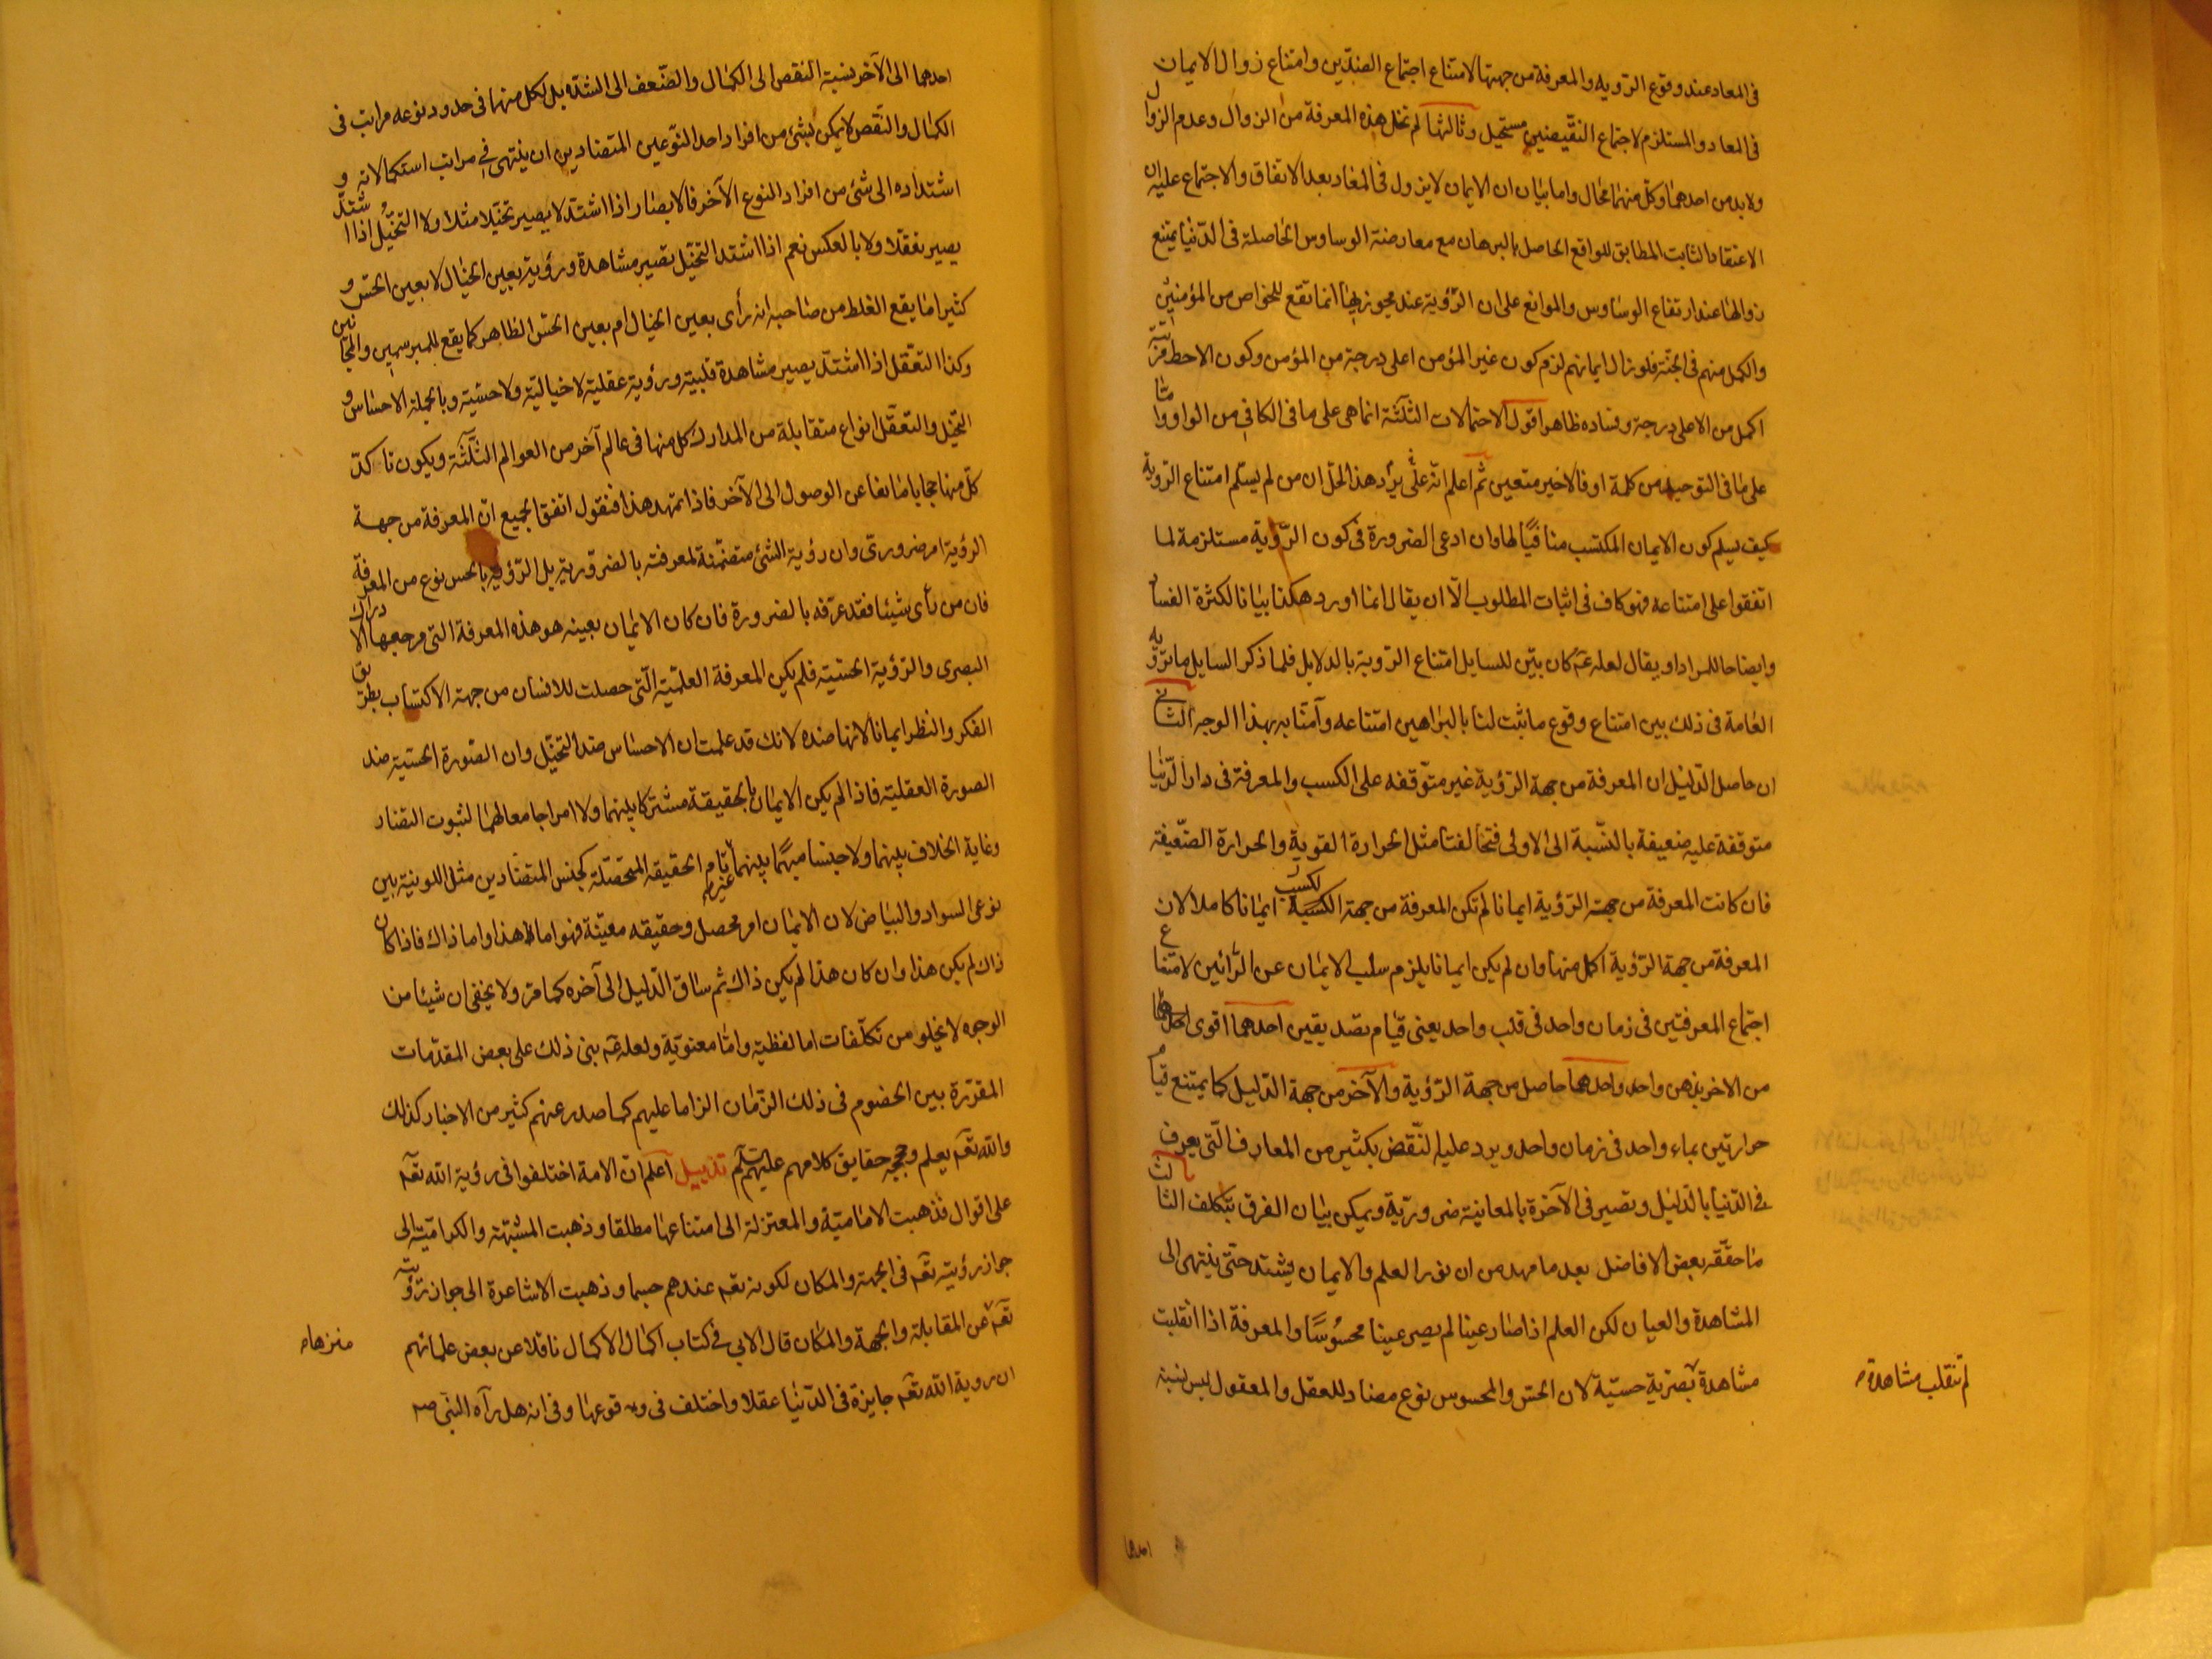 فى المعاد عند وقوع الرويه والمعرفة من جهتها لامتناع اجتماع الضدّين وامتناع زوال الايمان
فى المعاد والمستلزم لاجتماع النقيضين مستحيل وثالثها لم تخل هذه المعرفة من الزوال وعدم الزوال
ولا بد من احدهما وكلّ منهما محال واما بيان ان الايمان لايزول فى المعاد بعد الاتفاق والاجتماع عليه ان
الاعتقاد الثابت المطابق للواقع الحاصل بالبرهان مع معارضة الوساوس الحاصلة فى الدّنيا يمتنع
زوالها عند ارتفاع الوساوس والموانع على ان الرّؤية عند مجوزيها انما تقع للخواص من المؤمنين
والكمل منهم فى الجنّة فلو زال ايمانهم لزم كون غير المؤمن اعلى درجة من المؤمن وكون الاحط مرتبة
اكمل من الاعلى درجة وفساده ظاهر اقول الاحتمالات الثلثة انما هى على ما فى الكافى من الواو واما
على ما فى التوحيد من كلمة او فالاخير متعين ثم اعلم انه على يرد هذا الحلّ ان من لم يسلّم امتناع الرّوية
كيف يسلم كون الايمان المكتسب منافيًا لها وان ادعى الضرورة فى كون الرّؤية مستلزمة لما
اتفقوا على امتناعه فهو كاف فى اثبات المطلوب الّا ان يقال انما اورد هكذا بيانا لكثرة الفساد
وايضاحا للمراد او يقال لعله عم كان بيّن للسايل امتناع الرّوية بالدلايل فلما ذكر السايل ما ترويه
العامة فى ذلك بين امتناع وقوع ما ثبت لنا بالبراهين امتناعه وآمنّا به بهذا الوجه الثانى
ان حاصل الدّليل ان المعرفة من جهة الرّؤية غير متوقفه على الكسب والمعرفة فى دار الدّنيا
متوقفة عليه ضعيفة بالنّسبة الى الاولى فتخالفتا مثل الحرارة القوية والحرارة الضّعيفة
فان كانت المعرفة من جهة الرّؤية ايمانا لم تكن المعرفة من جهة الكسب ايمانا كاملا لان
المعرفة من جهة الرّؤية اكمل منها وان لم يكن ايمانا يلزم سلب الايمان عن الرّائين لامتناع
اجتماع المعرفتين فى زمان واحد فى قلب واحد يعنى قيام تصديقين احدهما اقوى
من الاخر بذهن واحد واحدهما حاصل من جهة الرّؤية والآخر من جهة الدّليل كما يمتنع قيام
حرارتين بماء واحد فى زمان واحد ويرد عليه النّقض بكثير من المعارف الّتى يعرف
فى الدّنيا بالدّليل وتصير فى الآخرة بالمعاينة ضروريّة ويمكن بيان الفرق بتكلف الثالث
ما حقّقه بعض الافاضل بعد ما مهد من ان نور العلم والايمان يشتد حتّى ينتهى الى
المشاهدة والعيان لكن العلم اذا صار عينا لم يصر عينا محسوسًا والمعرفة اذا انقلبت
مشاهدة بصريّة حسيّة لان الحسّ والمحسوس نوع مضاد للعقل والمعقول ليس نسبة
لم تنقلب مشاهدة
احدهما
احدهما الى الآخر نسبة النقص الى الكمال والضّعف الى الشدّه بل لكل منهما فى حدود نوعه مراتب فى
الكمال والنّقص لا يمكن لشئ من افراد احد النّوعين المتضادين ان ينتهى فى مراتب استكمالاته و
اشتداده الى شئ من افراد النوع الآخر فالابصار اذا اشتدّ لا يصير تخيّلا مثلا ولا التخيّل اذا اشتدّ
يصير تعقّلا ولا بالعكس نعم اذا اشتد التخيّل تصير مشاهدة ورؤية بعين الخيال لا بعين الحسّ و
كثيرا ما يقع الغلط من صاحبه انه رأى بعين الخيال ام بعين الحسّ الظاهر كما يقع للمبرسمين والمجانين
وكذا التعّقل اذا اشتدّ يصير مشاهدة قلبية ورؤية عقلية لا خيالية ولا حسّية وبالجملة الاحساس و
التخيّل والتعقّل انواع متقابلة من المدارك كل منها فى عالم آخر من العوالم الثّلثة ويكون تاكد
كلّ منها حجابا مانعا عن الوصول الى الآخر فاذا تمهد هذا فنقول اتفق الجميع انّ المعرفة من جهة
الرؤية امر ضرورى وان رؤية الشئ متضمّنة لمعرفته بالضرورة بل الرّؤية بالحس نوع من المعرفة
فان من رأى شيئا فقد عرّفه بالضرورة فان كان الايمان بعينه هو هذه المعرفة التى مرجعها الادراك
البصرى والرّؤية الحسّية فلم يكن المعرفة العلميّة الّتى حصلت للانسان من جهة الاكتساب بطريق
الفكر والنظر ايمانا لانها ضده لانك قد علمت ان الاحساس ضد التخيّل وان الصّورة الحسّية ضد
الصورة العقلية فاذا لم يكن الايمان بالحقيقة مشتركا بينهما ولا امرا جامعا لهما لثبوت التضاد
وغاية الخلاف بينهما ولا جنسا مبهما بينهما غير تام الحقيقه المتحصّلة كجنس المتضادين مثل اللونية بين
نوعى السواد والبياض لان الايمان امر محصل وحقيقه معينة فهو اما هذا واما ذاك فاذا كان
ذاك لم يكن هذا وان كان هذا لم يكن ذاك ثم ساق الدّليل الى آخره كما مرّ ولا يخفى ان شيئا من
الوجوه لا يخلو من تكلّفات اما لفظية وامّا معنويّة ولعله عم بنى ذلك على بعض المقدّمات
المقرّرة بين الخصوم فى ذلك الزمان الزاما عليهم كما صدر عنهم كثير من الاخبار كذلك
والله تعم يعلم وحججه حقايق كلامهم عليهم سلم تذييل اعلم انّ الامة اختلفوا فى رؤية الله تعم
على اقوال فذهبت الامامية والمعتزلة الى امتناعها مطلقا وذهبت المشبّهة والكراميّة الى
جواز رؤيته تعم فى الجهة والمكان لكونه تعم عندهم جسما وذهبت الاشاعرة الى جواز رؤيته
تعم عن المقابلة والجهة والمكان قال الابى فى كتاب اكمال الاكمال ناقلا عن بعض علمائهم
منزها
ان روية الله تعم جايزة فى الدّنيا عقلا واختلف فى وقوعها وفى انه هل رآه النبّى ص